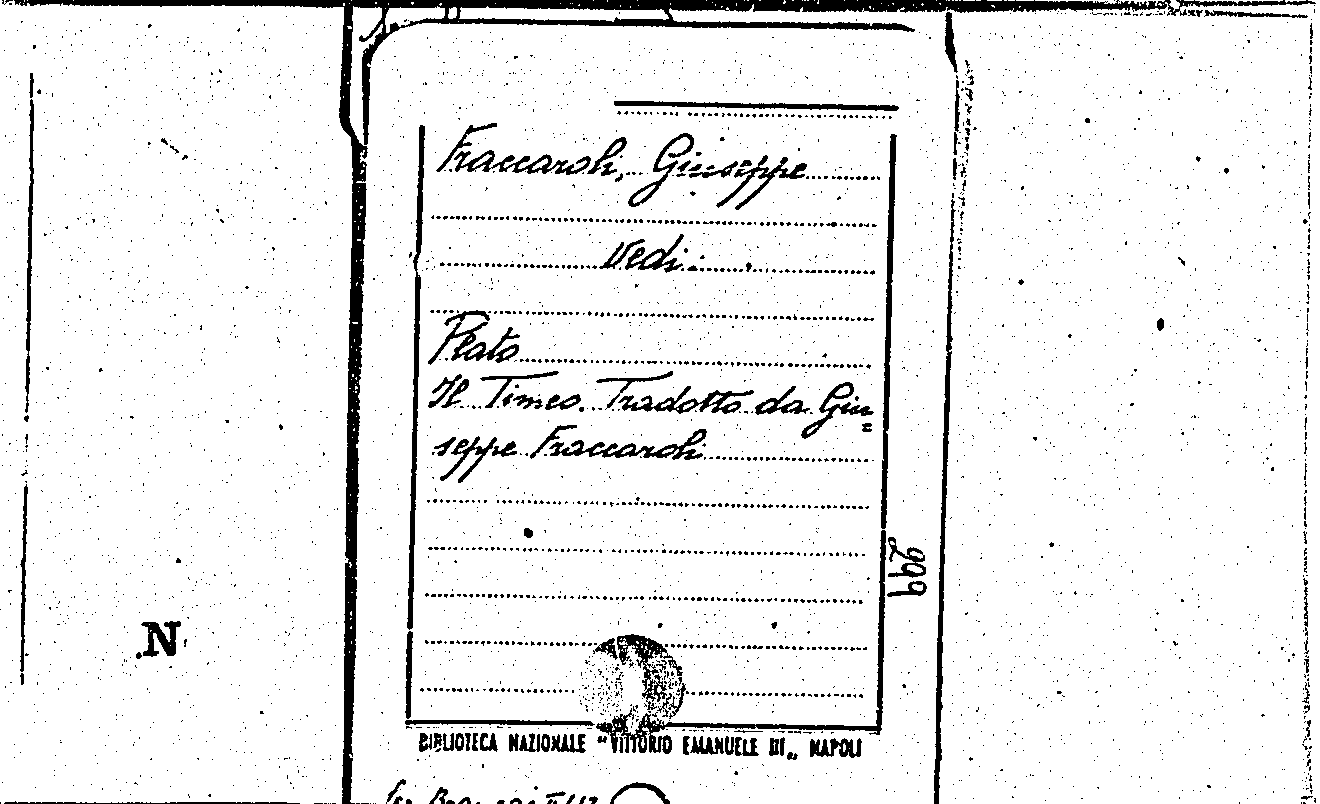 Fraccaroli, Giuseppe
Vedi:
Plato
Il Timeo. Tradotto da Giu=
seppe Fraccaroli
299
N
BIBLIOTECA NAZIONALE "VITTORIO EMANUELE III„ NAPOLI